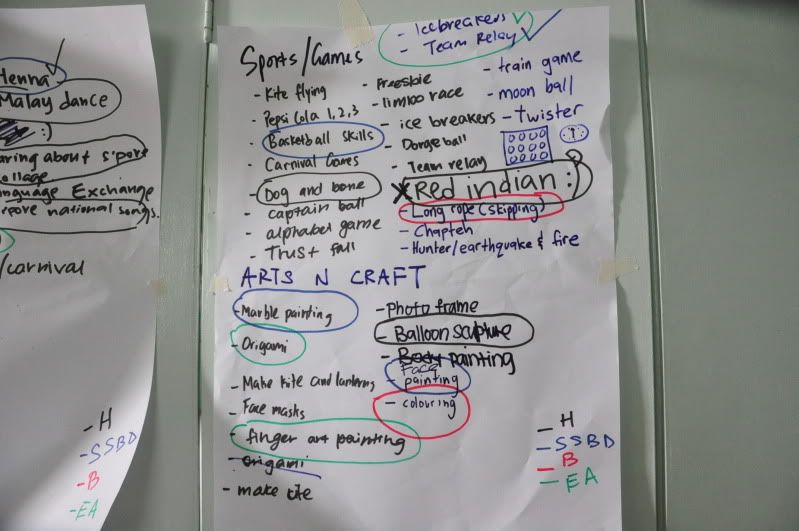 Henna
Malay dance
:)
aring about s'pore
ollage
nguage Exchange
national songs.
/carnival
- H
- SSBD
- B
- EA
- Icebreakers
- Team Relay
Sports/Games
- Kite flying
- Pepsi Cola 1,2,3
- Basketball skills
- Carnival Games
- Dog and bone
- captain ball
- alphabet game
- Trust fall
- Freesbie
- limloo race
- ice breakers
- Dorgeball
- Team relay
Red indian :)
- Long rope (skipping)
- Chapteh
- Hunter/earthquake & fire
- train game
- moon ball
- Twister
ARTS N CRAFT
- Marble painting
- Origami
- Make kite and lanterns
- Face masks
- finger art painting
- origami
- make kite
- Photo frame
- Balloon sculpture
- Body painting
Face
- painting
- colouring
- H
- SSBD
- B
- EA